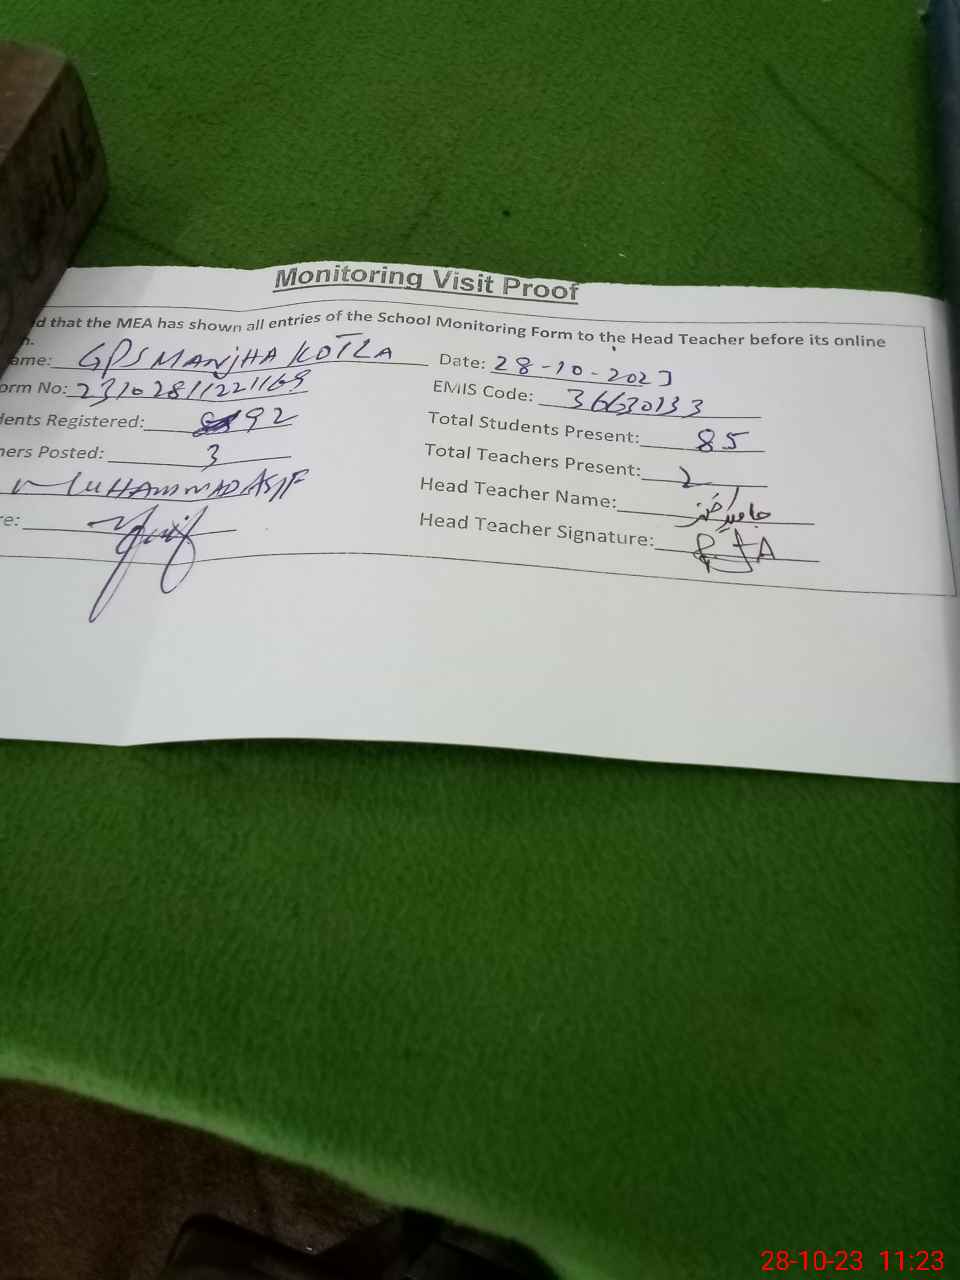 Monitoring Visit Proof
d that the MEA has shown all entries of the School Monitoring Form to the Head Teacher before its online
n.
ame: GPS MANJHA KOTLA Date: 28-10-2023
orm No: 23102811221169 EMIS Code: 36630133
dents Registered: 92 Total Students Present: 85
hers Posted: 3 Total Teachers Present: 2
MUHAMMAD ASIF Head Teacher Name:
re: Head Teacher Signature:
28-10-23 11:23